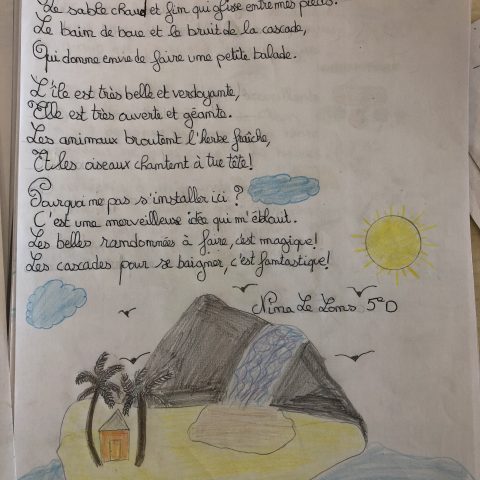 Le sable chaud et fin qui glisse entre mes pieds.
Le bain de boue et le bruit de la cascade,
Qui donne envie de faire une petite balade.
L'île est très belle et verdoyante,
Elle est très ouverte et géante.
Les animaux broutent l'herbe fraîche,
Et les oiseaux chantent à tue tête!
Pourquoi ne pas s'installer ici ?
C'est une merveilleuse idée qui m'éblouit.
Les belles randonnées à faire, c'est magique!
Les cascades pour se baigner, c'est fantastique!
Nina Le Lons 5°D